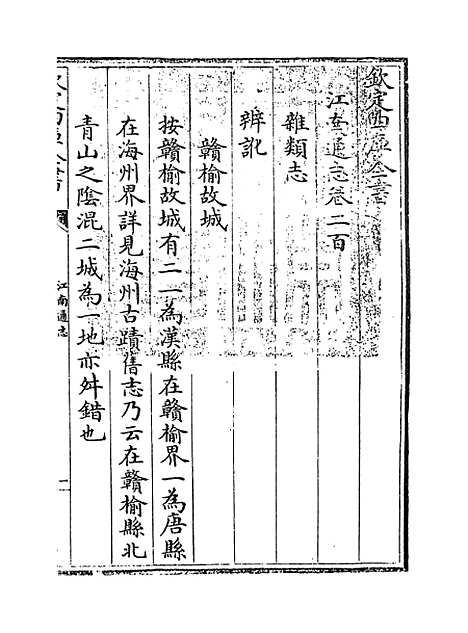 欽定四庫全書
江南通志卷二百
雜類志
辨訛
贛榆故城
按贛榆故城有二一為漢縣在贛榆界一為唐縣
在海州界詳見海州古蹟舊志乃云在贛榆縣北
青山之陰混二城為一地亦舛錯也
江南通志